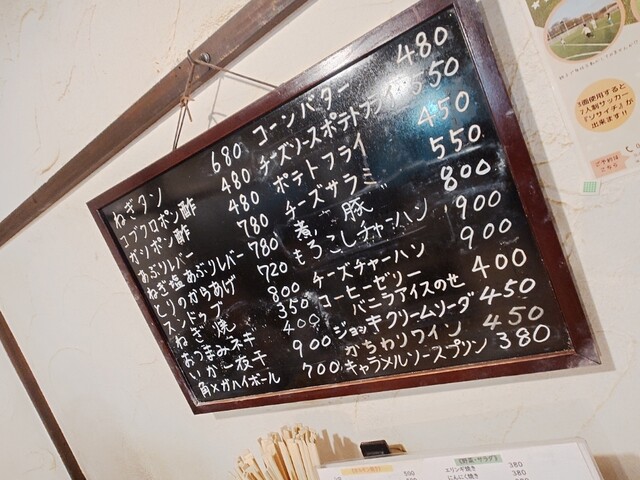 ねぎタン 680
コブクロポン酢 480
ガツポン酢 480
あぶりレバー 780
ねぎ塩あぶりレバー 780
とりのからあげ 720
スンドゥブ 800
ねぎ焼 350
おつまみネギ 400
いか一夜干 900
角メガハイボール 700
コーンバター 480
チーズソースポテトフライ 550
ポテトフライ 450
チーズサラミ 550
煮豚 800
もろこしチャーハン 900
チーズチャーハン 900
コーヒーゼリー
バニラアイスのせ 400
ジョッキクリームソーダ 450
かちわりワイン 450
キャラメルソースプリン 380
3面使用すると
7人制サッカー
『ソサイチ』が
出来ます!!
ご予約は
こちら
500
《野菜・サラダ》
エリンギ焼き 380
にんにく焼き 380